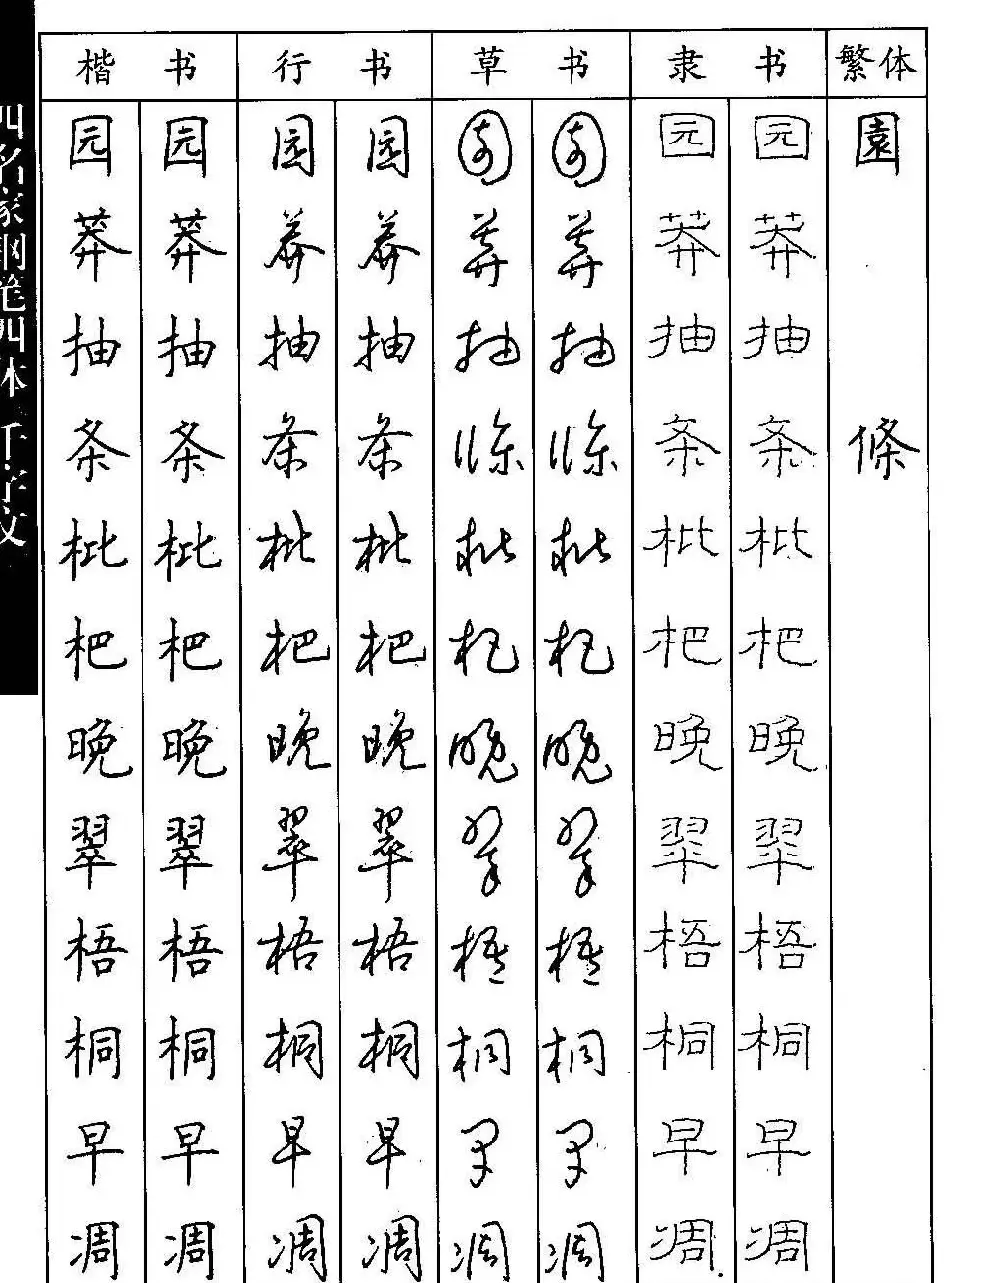 四名家钢笔四体千字文
楷书 行书 草书 隶书 繁体
园 园 园 园 园 园 园 园 園
莽 莽 莽 莽 莽 莽 莽 莽
抽 抽 抽 抽 抽 抽 抽 抽
条 条 条 条 條 條 条 条 條
枇 枇 枇 枇 枇 枇 枇 枇
杷 杷 杷 杷 杷 杷 杷 杷
晚 晚 晚 晚 晚 晚 晚 晚
翠 翠 翠 翠 翠 翠 翠 翠
梧 梧 梧 梧 梧 梧 梧 梧
桐 桐 桐 桐 桐 桐 桐 桐
早 早 早 早 早 早 早 早
凋 凋 凋 凋 凋 凋 凋 凋